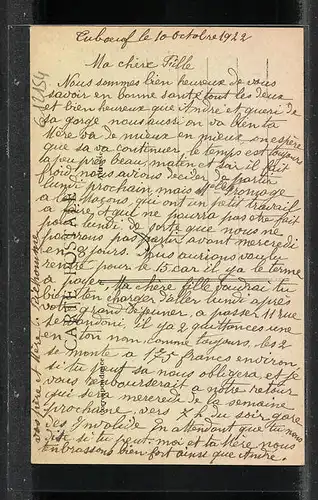 Cuboeuf le 10 octobre 1922
Ma chère Fille
Nous sommes bien heureux de vous
savoir en bonne santé tout les deux
et bien heureux que André est queri de
sa gorge nous aussi on va bien ta
Mère va de mieux en mieux, on espère
que sa va continuer, le temps est toujours
a peu près beau, matin et soir il fait
froid, nous avions décider de partir
lundi prochain mais
a les Maçons, qui ont un petit travail
a faire, et qui ne pourra pas être fait
pour lundi, de sorte que nous ne
pourrons pas partir avant mercredi
en 8 jours. Nous aurions voulu
rentré pour le 15 car il y a le terme
a payer Ma chère fille voudrai tu
bien t'en charger d'aller lundi après
votre grand déjeuner, a passer 11 rue
il y a 2 quittances une
en ton nom comme toujours, les 2
se monte a 175 francs environ,
si tu peut sa nous obligera et je
vous rembourserait a notre retour
qui sera mercredi de la semaine
prochaine vers 7 h du soir gare
des Invalide En attendant que tu nous
dise si tu peut. moi et ta Mère nous
embrassons bien fort ainsi que André.
vos père et Mère
CARTE POSTALE
Correspondance
12154